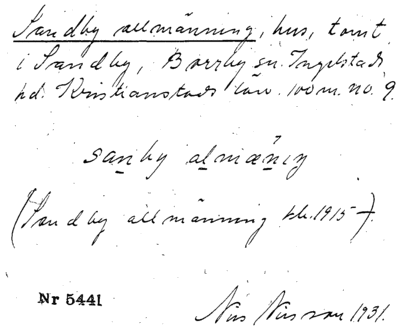 Sandby allmänning, hus, tomt
i Sandby, Borrby sn. Ingelstads
hd. Kristianstads län. 100 m. no. 9.
sanby almäniŋ
(Sandby allmänning kb. 1915-).
Nr 5441
Nils Nilsson 1931.